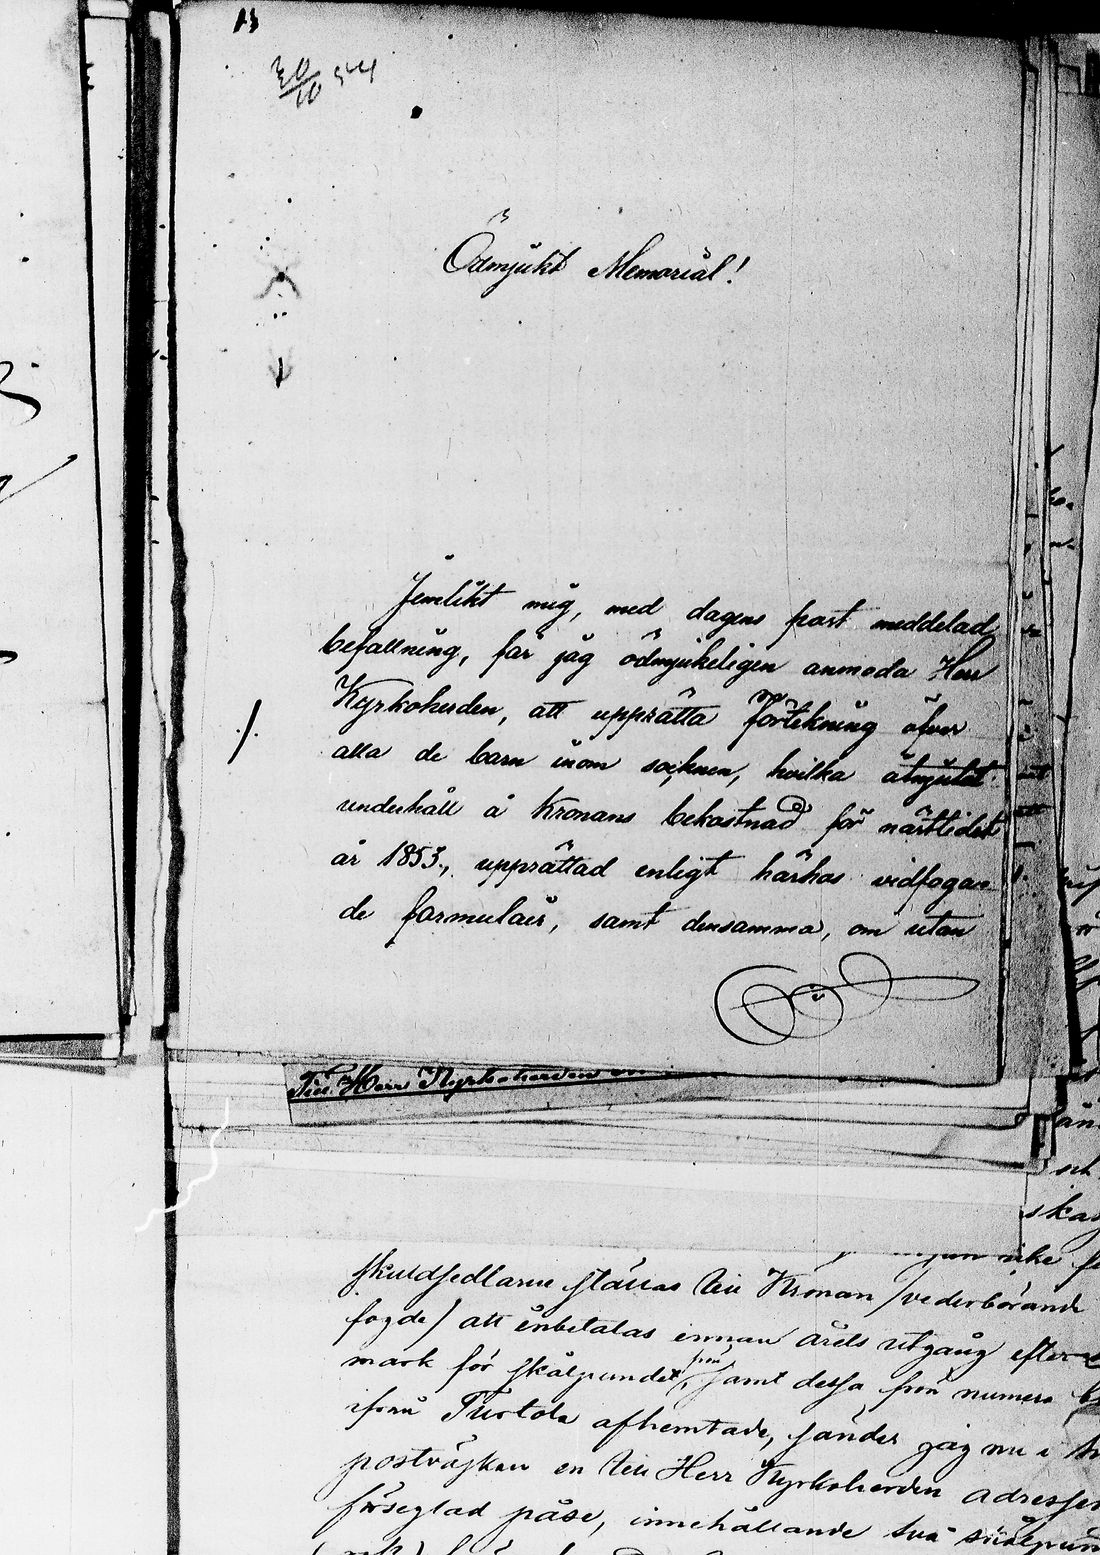 30/10 54
Ödmjukt Memorial!
Jemlikt mig, med dagens post meddelad
befallning, får jag ödmjukeligen anmoda Herr
Kyrkoherden, att upprätta förtekning öfver
alla de barn inom socknen, hvilka åtnjutit
underhåll å Kronans bekostnad för nästlidet
år 1853, upprättad enligt härhos vidfogan
de formulair, samt densamma, om utan
Till Herr Kyrkoherden
skuldsedlarne ställas till Kronan /vederbörande
fogde/ att inbetalas innan årets utgång efter
mark för skålpundet, samt dessa från numero
ifrån Tiistola afhemtade, sänder jag nu i
postväskan en till Herr Kyrkoherden adresse
förseglad påse, innehållande två skålpun